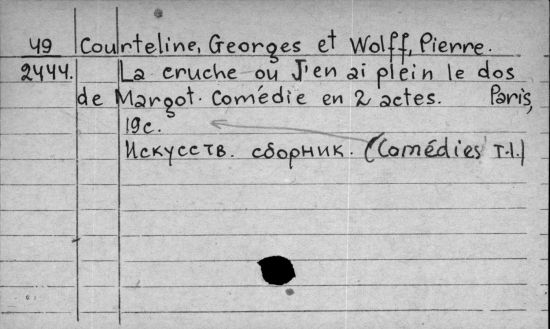 49 Courteline, Georges et Wolff, Pierre.
2444. La cruche ou J'en ai plein le dos
de Margot. Comédie en 2 actes. Paris,
19c.
Искусств. сборник. (Comédies т.I.)